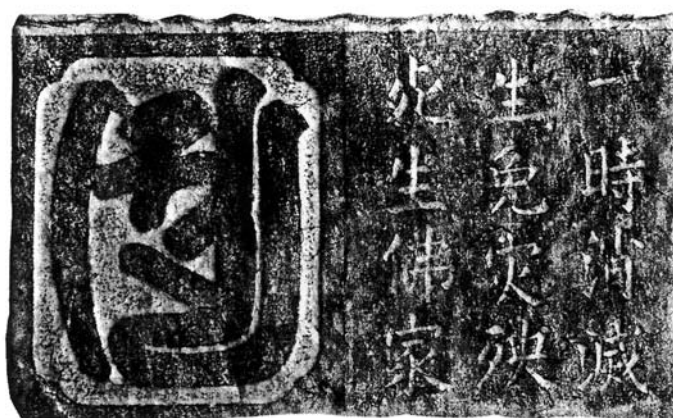 一時消滅
生免灾殃
死生佛家